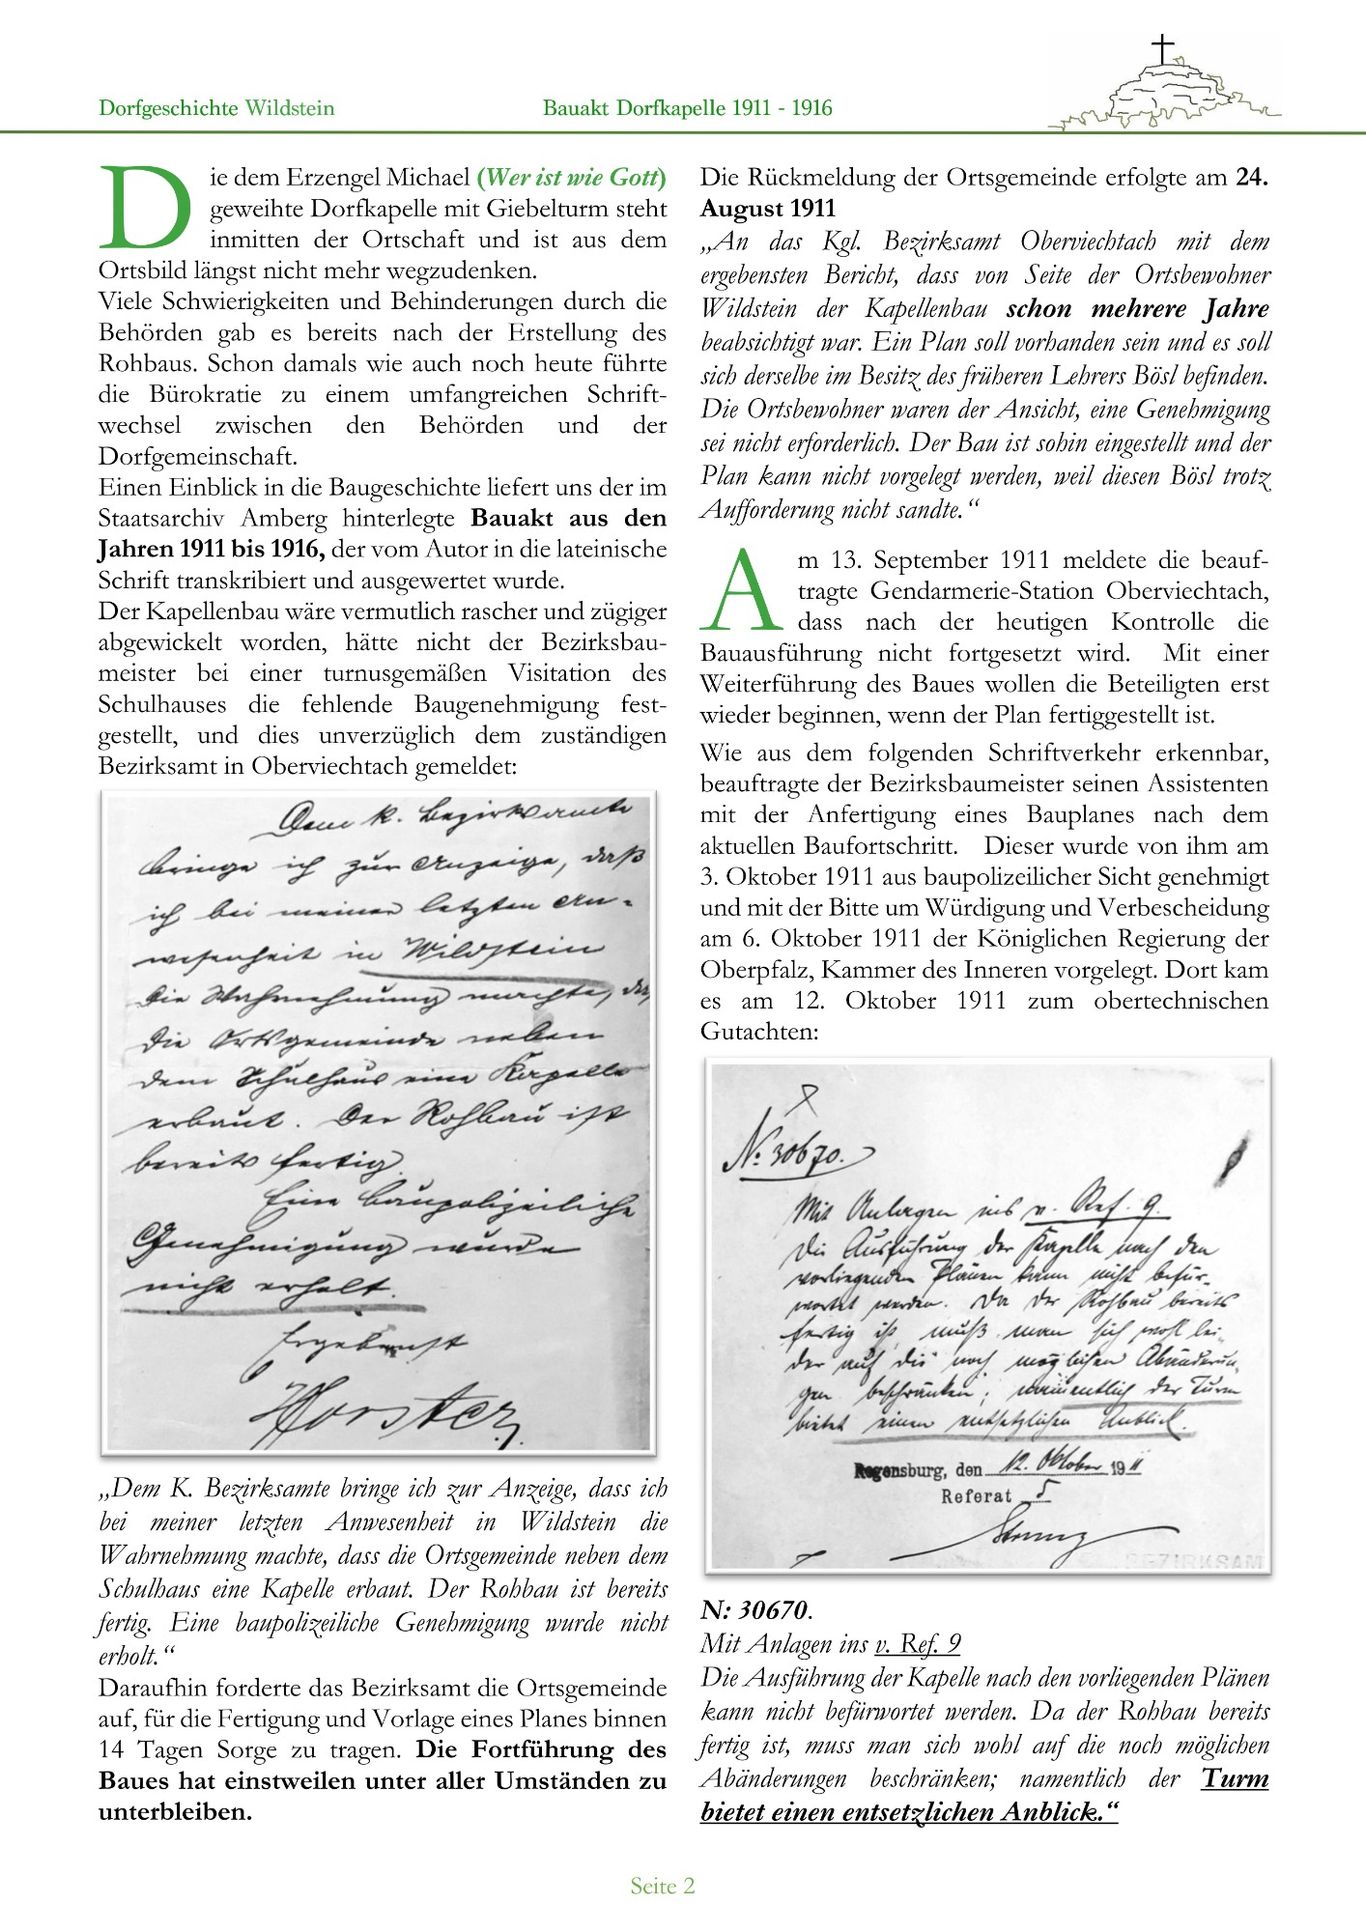 Dorfgeschichte Wildstein
Bauakt Dorfkapelle 1911 - 1916
Die dem Erzengel Michael (Wer ist wie Gott)
geweihte Dorfkapelle mit Giebelturm steht
inmitten der Ortschaft und ist aus dem
Ortsbild längst nicht mehr wegzudenken.
Viele Schwierigkeiten und Behinderungen durch die
Behörden gab es bereits nach der Erstellung des
Rohbaus. Schon damals wie auch noch heute führte
die Bürokratie zu einem umfangreichen Schrift-
wechsel zwischen den Behörden und der
Dorfgemeinschaft.
Einen Einblick in die Baugeschichte liefert uns der im
Staatsarchiv Amberg hinterlegte Bauakt aus den
Jahren 1911 bis 1916, der vom Autor in die lateinische
Schrift transkribiert und ausgewertet wurde.
Der Kapellenbau wäre vermutlich rascher und zügiger
abgewickelt worden, hätte nicht der Bezirksbau-
meister bei einer turnusgemäßen Visitation des
Schulhauses die fehlende Baugenehmigung fest-
gestellt, und dies unverzüglich dem zuständigen
Bezirksamt in Oberviechtach gemeldet:
Dem k. Bezirksamte
bringe ich zur Anzeige, daß
ich bei meiner letzten An-
wesenheit in Wildstein
die Wahrnehmung machte, daß
die Ortsgemeinde neben
dem Schulhaus eine Kapelle
erbaut. Der Rohbau ist
bereits fertig.
Eine baupolizeiliche
Genehmigung wurde
nicht erholt.
Ergebenst
Horster
„Dem K. Bezirksamte bringe ich zur Anzeige, dass ich
bei meiner letzten Anwesenheit in Wildstein die
Wahrnehmung machte, dass die Ortsgemeinde neben dem
Schulhaus eine Kapelle erbaut. Der Rohbau ist bereits
fertig. Eine baupolizeiliche Genehmigung wurde nicht
erholt.“
Daraufhin forderte das Bezirksamt die Ortsgemeinde
auf, für die Fertigung und Vorlage eines Planes binnen
14 Tagen Sorge zu tragen. Die Fortführung des
Baues hat einstweilen unter aller Umständen zu
unterbleiben.
Die Rückmeldung der Ortsgemeinde erfolgte am 24.
August 1911
„An das Kgl. Bezirksamt Oberviechtach mit dem
ergebensten Bericht, dass von Seite der Ortsbewohner
Wildstein der Kapellenbau schon mehrere Jahre
beabsichtigt war. Ein Plan soll vorhanden sein und es soll
sich derselbe im Besitz des früheren Lehrers Bösl befinden.
Die Ortsbewohner waren der Ansicht, eine Genehmigung
sei nicht erforderlich. Der Bau ist sohin eingestellt und der
Plan kann nicht vorgelegt werden, weil diesen Bösl trotz
Aufforderung nicht sandte.“
Am 13. September 1911 meldete die beauf-
tragte Gendarmerie-Station Oberviechtach,
dass nach der heutigen Kontrolle die
Bauausführung nicht fortgesetzt wird. Mit einer
Weiterführung des Baues wollen die Beteiligten erst
wieder beginnen, wenn der Plan fertiggestellt ist.
Wie aus dem folgenden Schriftverkehr erkennbar,
beauftragte der Bezirksbaumeister seinen Assistenten
mit der Anfertigung eines Bauplanes nach dem
aktuellen Baufortschritt. Dieser wurde von ihm am
3. Oktober 1911 aus baupolizeilicher Sicht genehmigt
und mit der Bitte um Würdigung und Verbescheidung
am 6. Oktober 1911 der Königlichen Regierung der
Oberpfalz, Kammer des Inneren vorgelegt. Dort kam
es am 12. Oktober 1911 zum obertechnischen
Gutachten:
N: 30670.
Mit Anlagen ins v. Ref. 9.
Die Ausführung der Kapelle nach den
vorliegenden Plänen kann nicht befür-
wortet werden. Da der Rohbau bereits
fertig ist, muß man sich wohl lei-
der auf die noch möglichen Abänderun-
gen beschränken; namentlich der Turm
bietet einen entsetzlichen Anblick.
Regensburg, den 12. Oktober 1911
Referat 5
BEZIRKSAM
N: 30670.
Mit Anlagen ins v. Ref. 9
Die Ausführung der Kapelle nach den vorliegenden Plänen
kann nicht befürwortet werden. Da der Rohbau bereits
fertig ist, muss man sich wohl auf die noch möglichen
Abänderungen beschränken; namentlich der Turm
bietet einen entsetzlichen Anblick.“
Seite 2